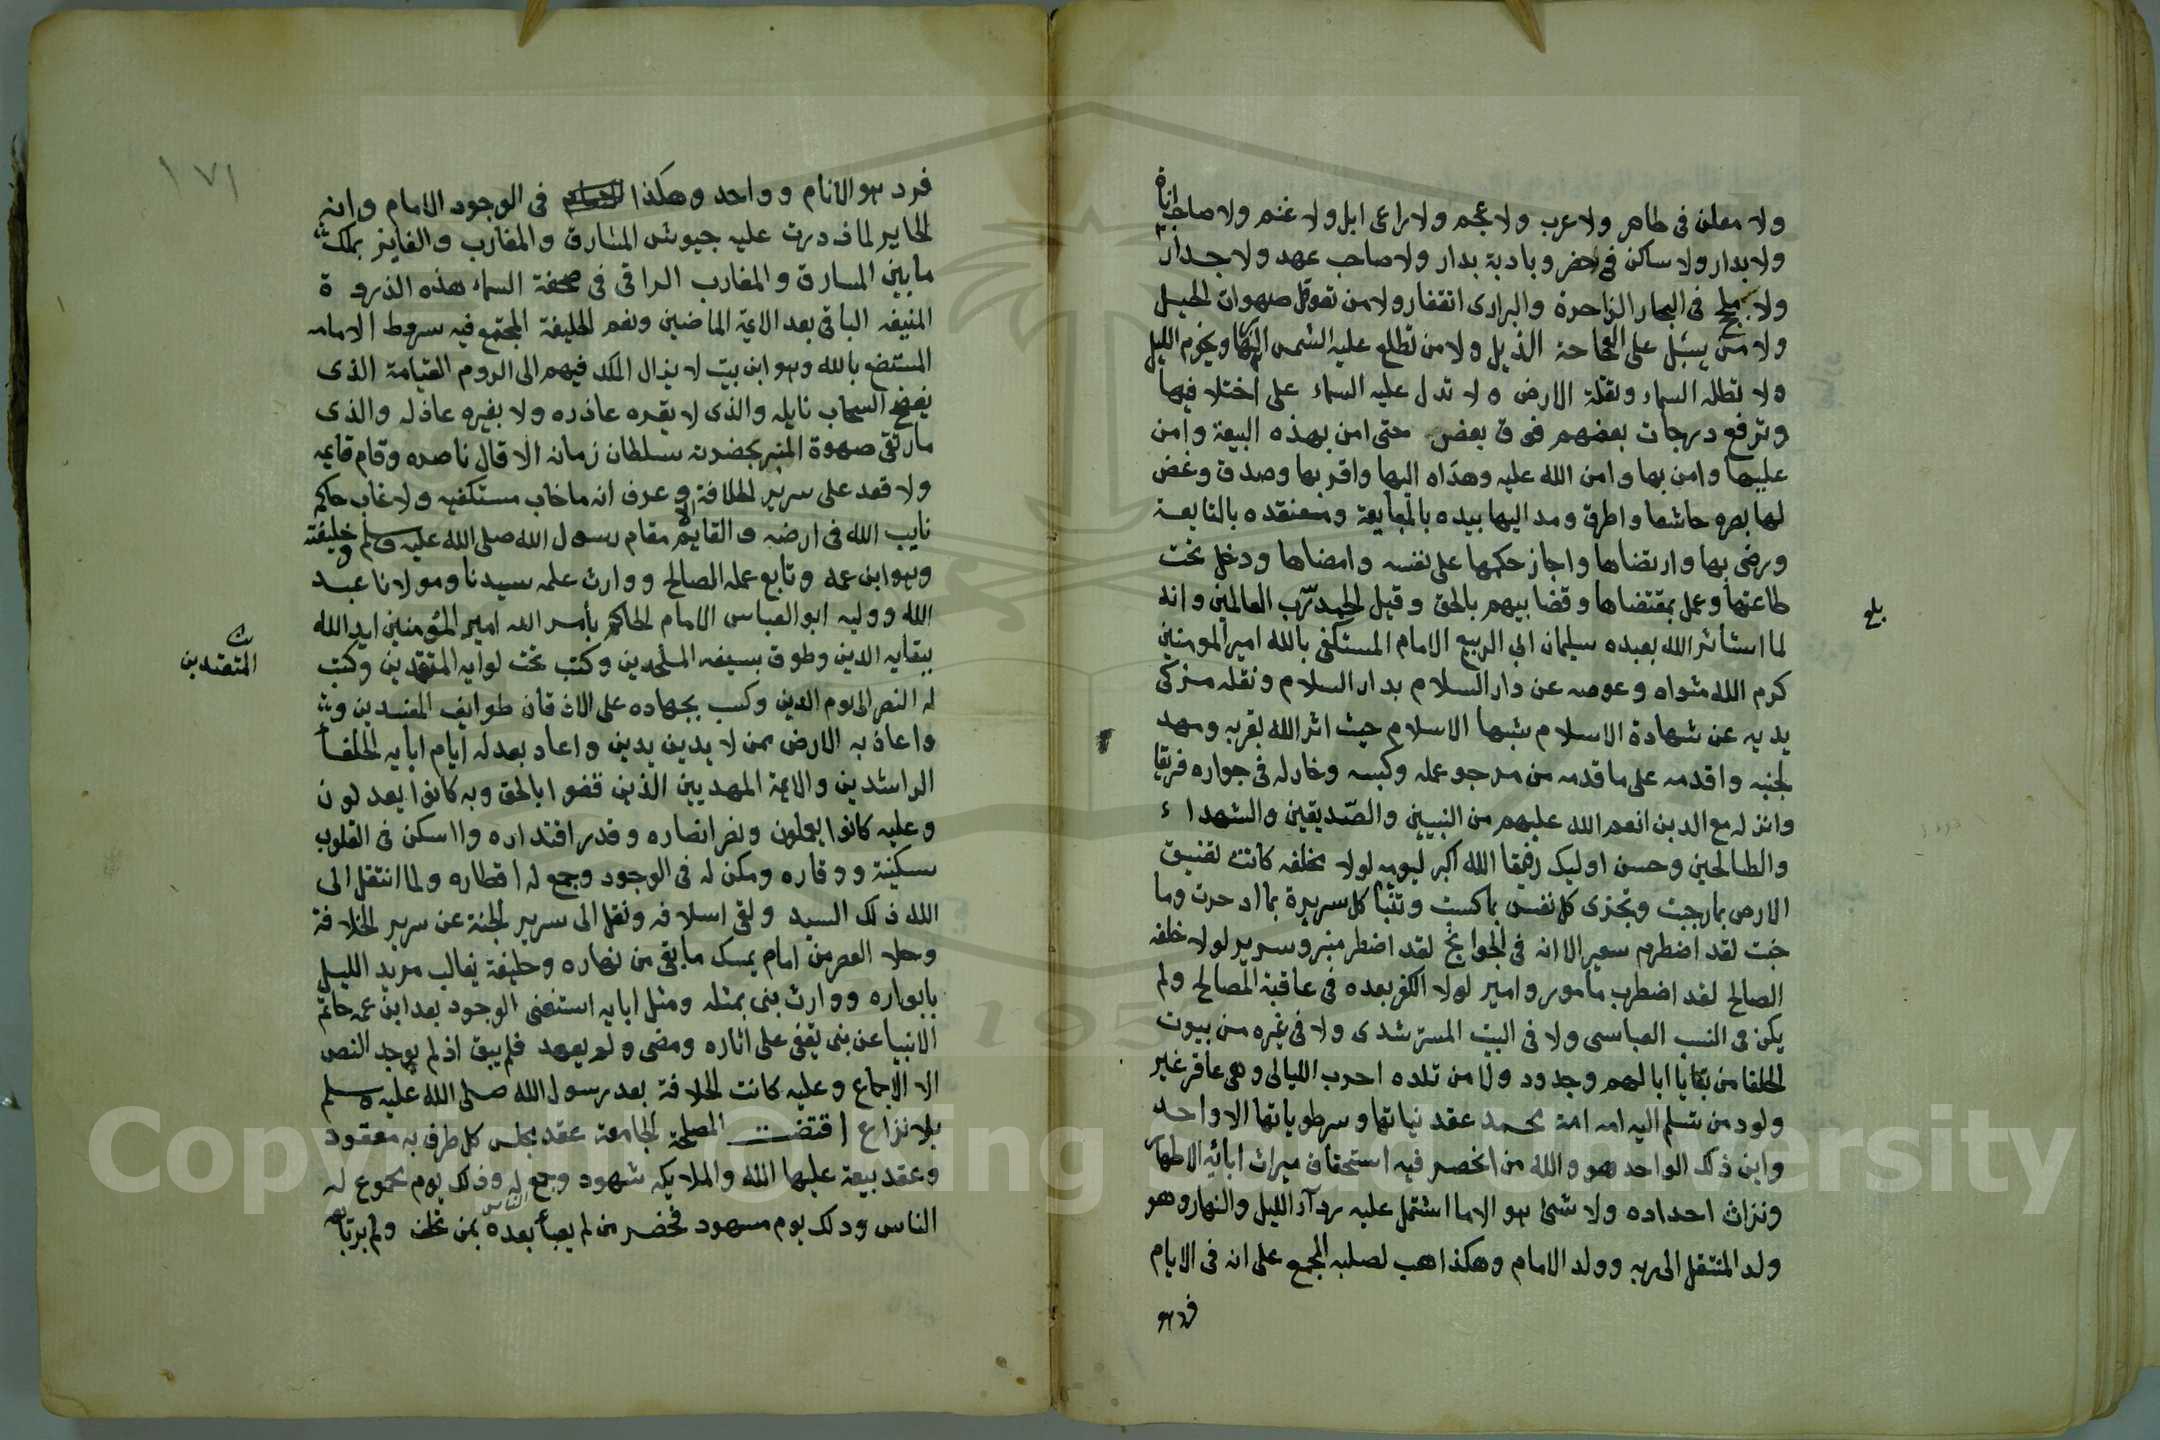 ولا معلن في طاهر ولا عرب ولا عجم ولا راعى ابل ولا غنم ولا صاحب اناة
ولا بدار ولا ساكن في حضر وبادية بدار ولا صاحب عهد ولا جدار
ولا ملجج في البحار الزاخرة والبرارى القفار ولا من تعوقل صهوات الخيل
ولا من يسبل على العجاحة الذيل ولا من تطلع عليه الشمس النها ونجوم الليل
ولا تظله السماء وتقلة الارض ولا تدل عليه السماء على اختلا فيها
وترفع درجات بعضهم فوق بعض حتى امن بهذه البيعة وامن
عليها وامن بها وامن الله عليه وهداه اليها واقر بها وصدق وغض
لها بصره خاشعا واطرق ومد اليها بيده بالمبايعة ومعتقده بالمتابعة
ورضى بها وارتضاها واجاز حكمها على نفسه وامضاها ودخل تحت
طاعتها وعمل بمقتضاها وقضا بيهم بالحق وقيل الحمد لله رب العالمين وانه
بلغ
لما استاثر الله بعبده سليمان ابي الربيع الامام المستكفى بالله امير المومنين
كرم الله مثواه وعوضه عن دار السلام بدار السلام ونقله مزكى
يديه عن شهادة الاسلام شبها الاسلام حيث اثر الله بقربه ومهد
لجنبه واقدمه على ما قدمه من مرجو عمله وكسبه وخار له في جواره فريقا
وانزله مع الدين انعم الله عليهم من النبيين والصديقين والشهداء
والصالحين وحسن اوليك رفيقا الله اكبر ليومه لولا مخلفه كانت لتضيق
الارض بما رحبت وتجزى كل نفس بما كسبت وتنبا كل سريرة بما ادخرت وما
خبت لقد اضطرم سعير الا انه في الجوانح لقد اضطر منبر وسرير لولا خلفه
الصالح لقد اضطرب مامور وامير لولا الفكر بعده في عاقبة المصالح ولم
يكن في النسب العباسى ولا في البيت المسترشدى ولا في غيره من بيوت
الخلفا من بقايا ابا لهم وجدود ولا من تلده احرب الليالى وهى عاقر غير
ولود من تسلم اليه امه امة محمد عقد نياتها وسر طوياتها الا واحد
واين ذلك الواحد هو والله من انحصر فيه استحقاق ميراث ابائه الاطهار
وتراث اجداده ولا شئ هو الا ما اشتمل عليه ردآء الليل والنهار وهو
ولد المنتقل الى ربه وولد الامام وهكذا هب لصلبه المجمع على انه في الايام
فرد هو
١٧١
فرد هو الانام وواحد وهكذا في الوجود الامام وانه
الحايز لما زررت عليه جيوش المشارق والمغارب والفايز بملك
ما بين المسارق والمغارب الراقى في صحفة السماء هذه الذروة
المنيفه الباقى بعد الايمة الماضين ونعم الخليفة المجتمع فيه سروط الامامه
المستضع بالله وهو ابن بيت لا يزال الملك فيهم الى الروم القيامة الذى
يفضح السحاب نايله والذى لا يقره عاذره ولا يغيره عاذله والذى
ما رتقى صهوة المنبر بحضرت سلطان زمانه الا قال ناصره وقام قايمه
ولا قعد على سرير الخلافة الا وعرف انه ما خاب مستكفيه ولا غاب حاكم
نايب الله في ارضه والقايم مقام رسول الله صلى الله عليه وسلم وخليفته
وهو ابن عمه وتابع عمله الصالح ووارث علمه سيدنا ومولانا عبد
الله ووليه ابو العباس الامام الحاكم بأمر الله امير المؤمنين ايد الله
ببقايه الدين وطوق بسيفه الملحدين وكتب تحت لوايه المتقدين وكتب
المتعتدين
له النصر الى يوم الدين وكب بجهاده على الاذقان طوايف المفسدين
واعاذ به الارض ممن لا يدين يدين واعاد بعدله ايام ابايه الخلفأ
الراشدين والايمة المهديين الذين قضوا بالحق وبه كانوا يعدلون
وعليه كانوا يعملون ونصر انصاره وقدر اقتداره وا اسكن في القلوب
سكينة ووقاره ومكن له في الوجود وجمع له اقطاره ولما انتقل الى
الله ذلك السيد ولقى اسلافه ونقل الى سرير الجنة عن سرير الخلافة
وخلا العصر من امام يمسك ما بقى من نهاره وخليفة يغالب مريد الليل
بابواره ووارث بنى بمثله ومثل ابايه استغنى الوجود بعد ابن عمه خاتم
الانبيا عن بنى يقفى على اثاره ومضى ولم يعهد فلم يبق اذ لم يوجد النص
الا الاجماع وعليه كانت الخلافة بعد رسول الله صلى الله عليه وسلم
بلا نزاع اقتضت المصلحة الجامعة عقد مجلس كل طرف به معقود
وعقد بيعة عليها الله والملايكه شهود وجمع له الناس وذلك يوم مجموع له
الناس وذلك يوم مسهود فحضر من لم يعبأ بعده بمن تخلف ولم يربأ به